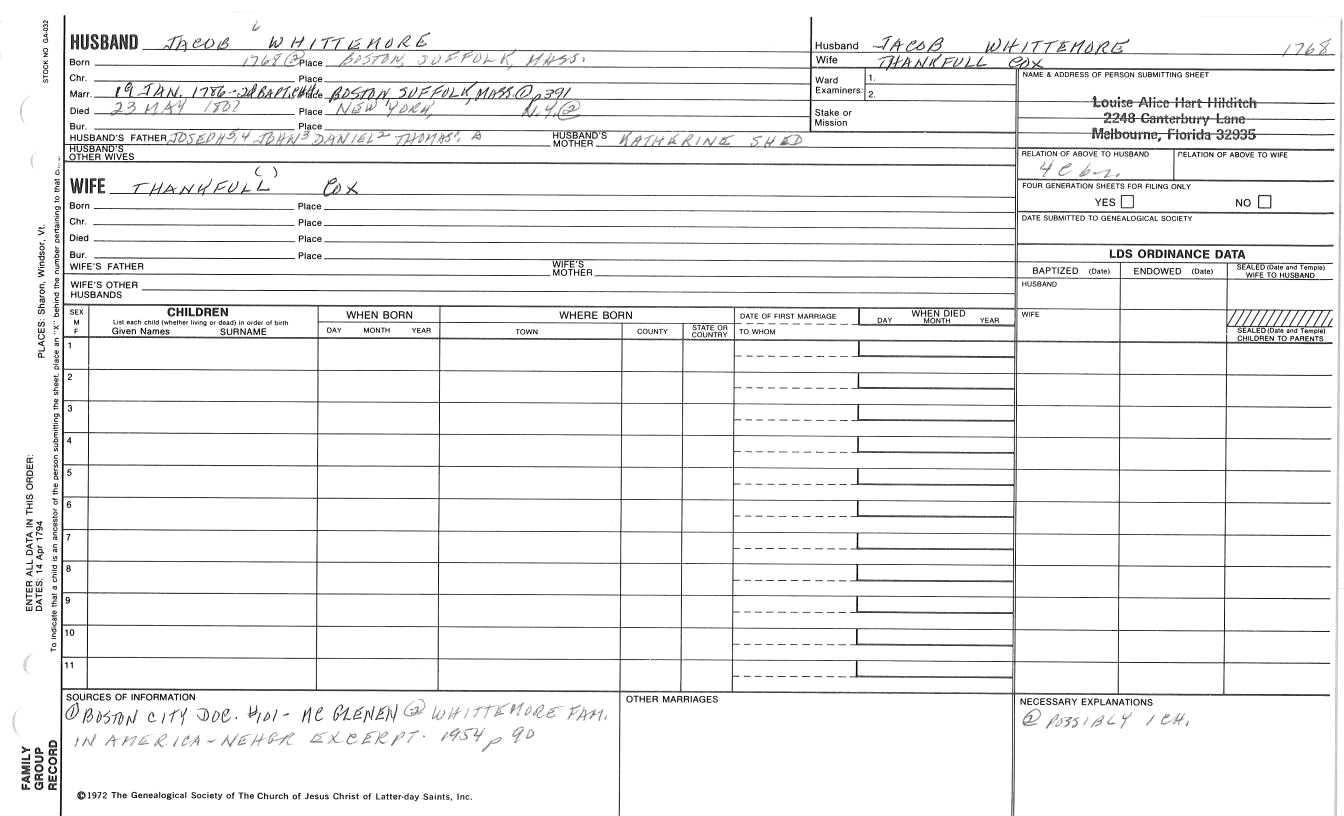 STOCK NO GA-032
HUSBAND JACOB 6 WHITTEMORE
Born 1768 ② Place BOSTON, SUFFOLK, MASS.
Chr. Place
Marr. 19 JAN. 1786-2d BAPT. CHH Place BOSTON SUFFOLK, MASS ① p391
Died 23 MAY 1802 Place NEW YORK, N.Y. ②
Bur. Place
HUSBAND'S FATHER JOSEPH 5, 4 JOHN 3 DANIEL 2 THOMAS 1, A HUSBAND'S MOTHER KATHERINE SHED
HUSBAND'S OTHER WIVES
WIFE THANKFULL ( ) COX
Born Place
Chr. Place
Died Place
Bur. Place
WIFE'S FATHER WIFE'S MOTHER
WIFE'S OTHER HUSBANDS
Husband JACOB WHITTEMORE 1768
Wife THANKFULL COX
Ward Examiners: 1.
2.
Stake or Mission
NAME & ADDRESS OF PERSON SUBMITTING SHEET
Louise Alice Hart Hilditch
2248 Canterbury Lane
Melbourne, Florida 32935
RELATION OF ABOVE TO HUSBAND RELATION OF ABOVE TO WIFE
4 C 6 r.
FOUR GENERATION SHEETS FOR FILING ONLY
YES NO
DATE SUBMITTED TO GENEALOGICAL SOCIETY
LDS ORDINANCE DATA
BAPTIZED (Date) ENDOWED (Date) SEALED (Date and Temple) WIFE TO HUSBAND
HUSBAND
WIFE
SEALED (Date and Temple) CHILDREN TO PARENTS
SEX M F
CHILDREN
List each child (whether living or dead) in order of birth
Given Names SURNAME
WHEN BORN
DAY MONTH YEAR
WHERE BORN
TOWN COUNTY STATE OR COUNTRY
DATE OF FIRST MARRIAGE
TO WHOM
WHEN DIED
DAY MONTH YEAR
1
2
3
4
5
6
7
8
9
10
11
SOURCES OF INFORMATION
① BOSTON CITY DOC. #101- MC GLENEN ② WHITTEMORE FAM.
IN AMERICA-NEHGR EXCERPT. 1954 p 90
OTHER MARRIAGES
NECESSARY EXPLANATIONS
② POSSIBLY 1 CH.
©1972 The Genealogical Society of The Church of Jesus Christ of Latter-day Saints, Inc.
ENTER ALL DATA IN THIS ORDER:
DATES: 14 Apr 1794 PLACES: Sharon, Windsor, Vt.
To indicate that a child is an ancestor of the person submitting the sheet, place an "X" behind the number pertaining to that c
FAMILY
GROUP
RECORD